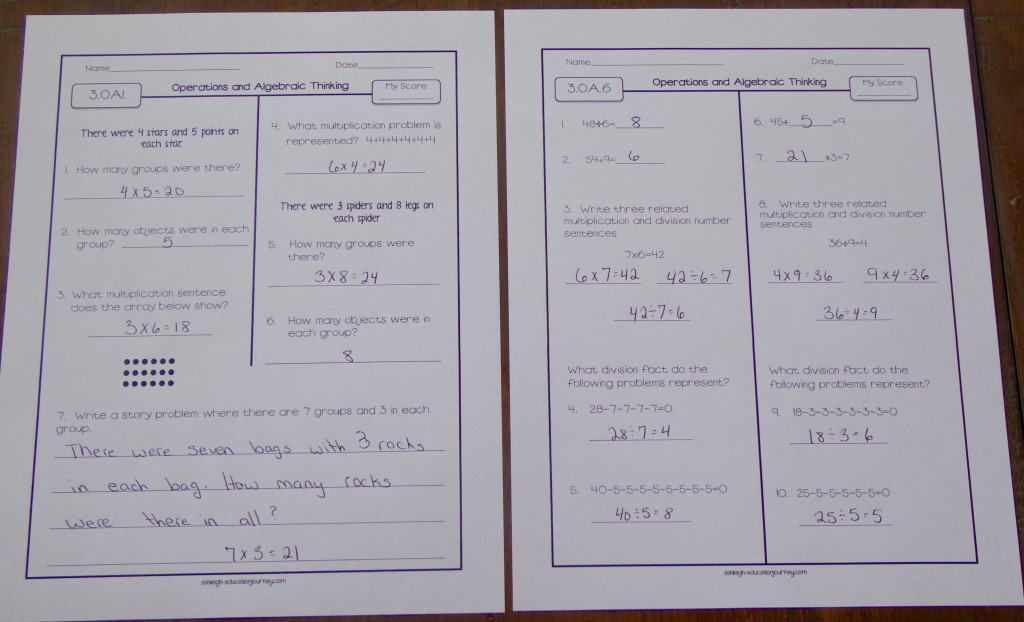 Name
Date
3.OA.1
Operations and Algebraic Thinking
My Score
There were 4 stars and 5 points on
each star.
1. How many groups were there?
4 x 5 = 20
2. How many objects were in each
group? 5
3. What multiplication sentence
does the array below show?
3 x 6 = 18
4. What multiplication problem is
represented? 4+4+4+4+4+4
6 x 4 = 24
There were 3 spiders and 8 legs on
each spider
5. How many groups were
there?
3 x 8 = 24
6. How many objects were in
each group?
8
7. Write a story problem where there are 7 groups and 3 in each
group.
There were seven bags with 3 rocks
in each bag. How many rocks
were there in all?
7 x 3 = 21
ashleigh-educationjourney.com
Name
Date
3.OA.6
Operations and Algebraic Thinking
My Score
1. 48÷6= 8
2. 54÷9= 6
3. Write three related
multiplication and division number
sentences.
7x6=42
6 x 7 = 42 42 ÷ 6 = 7
42 ÷ 7 = 6
What division fact do the
following problems represent?
4. 28-7-7-7-7=0
28 ÷ 7 = 4
5. 40-5-5-5-5-5-5-5-5=0
40 ÷ 5 = 8
6. 45÷ 5 =9
7. 21 ÷3=7
8. Write three related
multiplication and division number
sentences
36÷9=4
4 x 9 = 36 9 x 4 = 36
36 ÷ 4 = 9
What division fact do the
following problems represent?
9. 18-3-3-3-3-3-3=0
18 ÷ 3 = 6
10. 25-5-5-5-5-5=0
25 ÷ 5 = 5
ashleigh-educationjourney.com